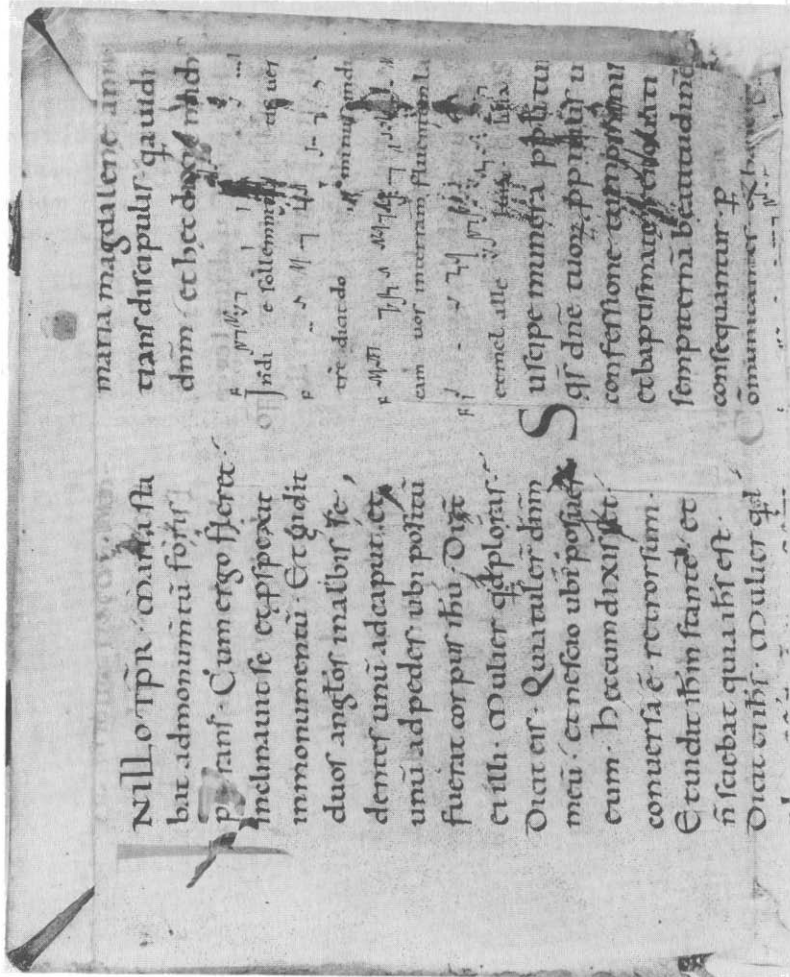 N ILLO TP̅R. Maria sta
bat ad monum̅tu̅ foris
p rans. Cum ergo fleret.
inclinauit se et ꝓspexit
in monumentu̅. Et uidit
duos anglos in albis se
dentes unu̅ ad caput. et
unu̅ ad pedes. ubi positu̅
fuerat corpus ihu̅. Dicu̅t
ei illi. Mulier qd̅ ploras.
Dicit eis. Quia tuler̅ dnm̅
meu̅. et nescio ubi posuer̅
eum. hec cum dixisset.
conuersa e̅. retrorsum.
Et uidit ihm̅ stante̅. et
n̅ sciebat quia ihs̅ est.
Dicit ei ihs̅. Mulier qd̅
maria magdalene ann
tians discipulis. q̅a uidi
dnm̅. et hec dixit mihi
In di e sollemnita tis ues
tre̅ dicit do minus indu
cam uos in terram fluentem la
et mel alle luia
Suscipe munera pp̅li tui
qs̅ dne̅ tuoꝝ ppitius u
confessione tui nominis
et baptismate renouati
sempiterna̅ beatitudine̅
consequantur. p̅
Co̅municantes.